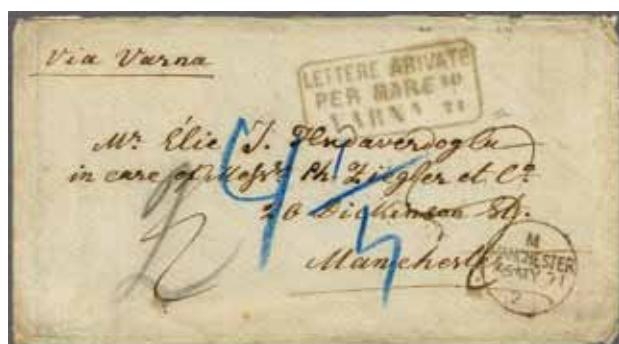 Via Varna
LETTERE ARIVATE
PER MARE
VARNA 71
Mr. Élie J. Hudaverdoglu
in care of Messrs. Ph. Ziegler et Co.
20 Dickinson St.
Manchester
M
MANCHESTER
MY 71
2